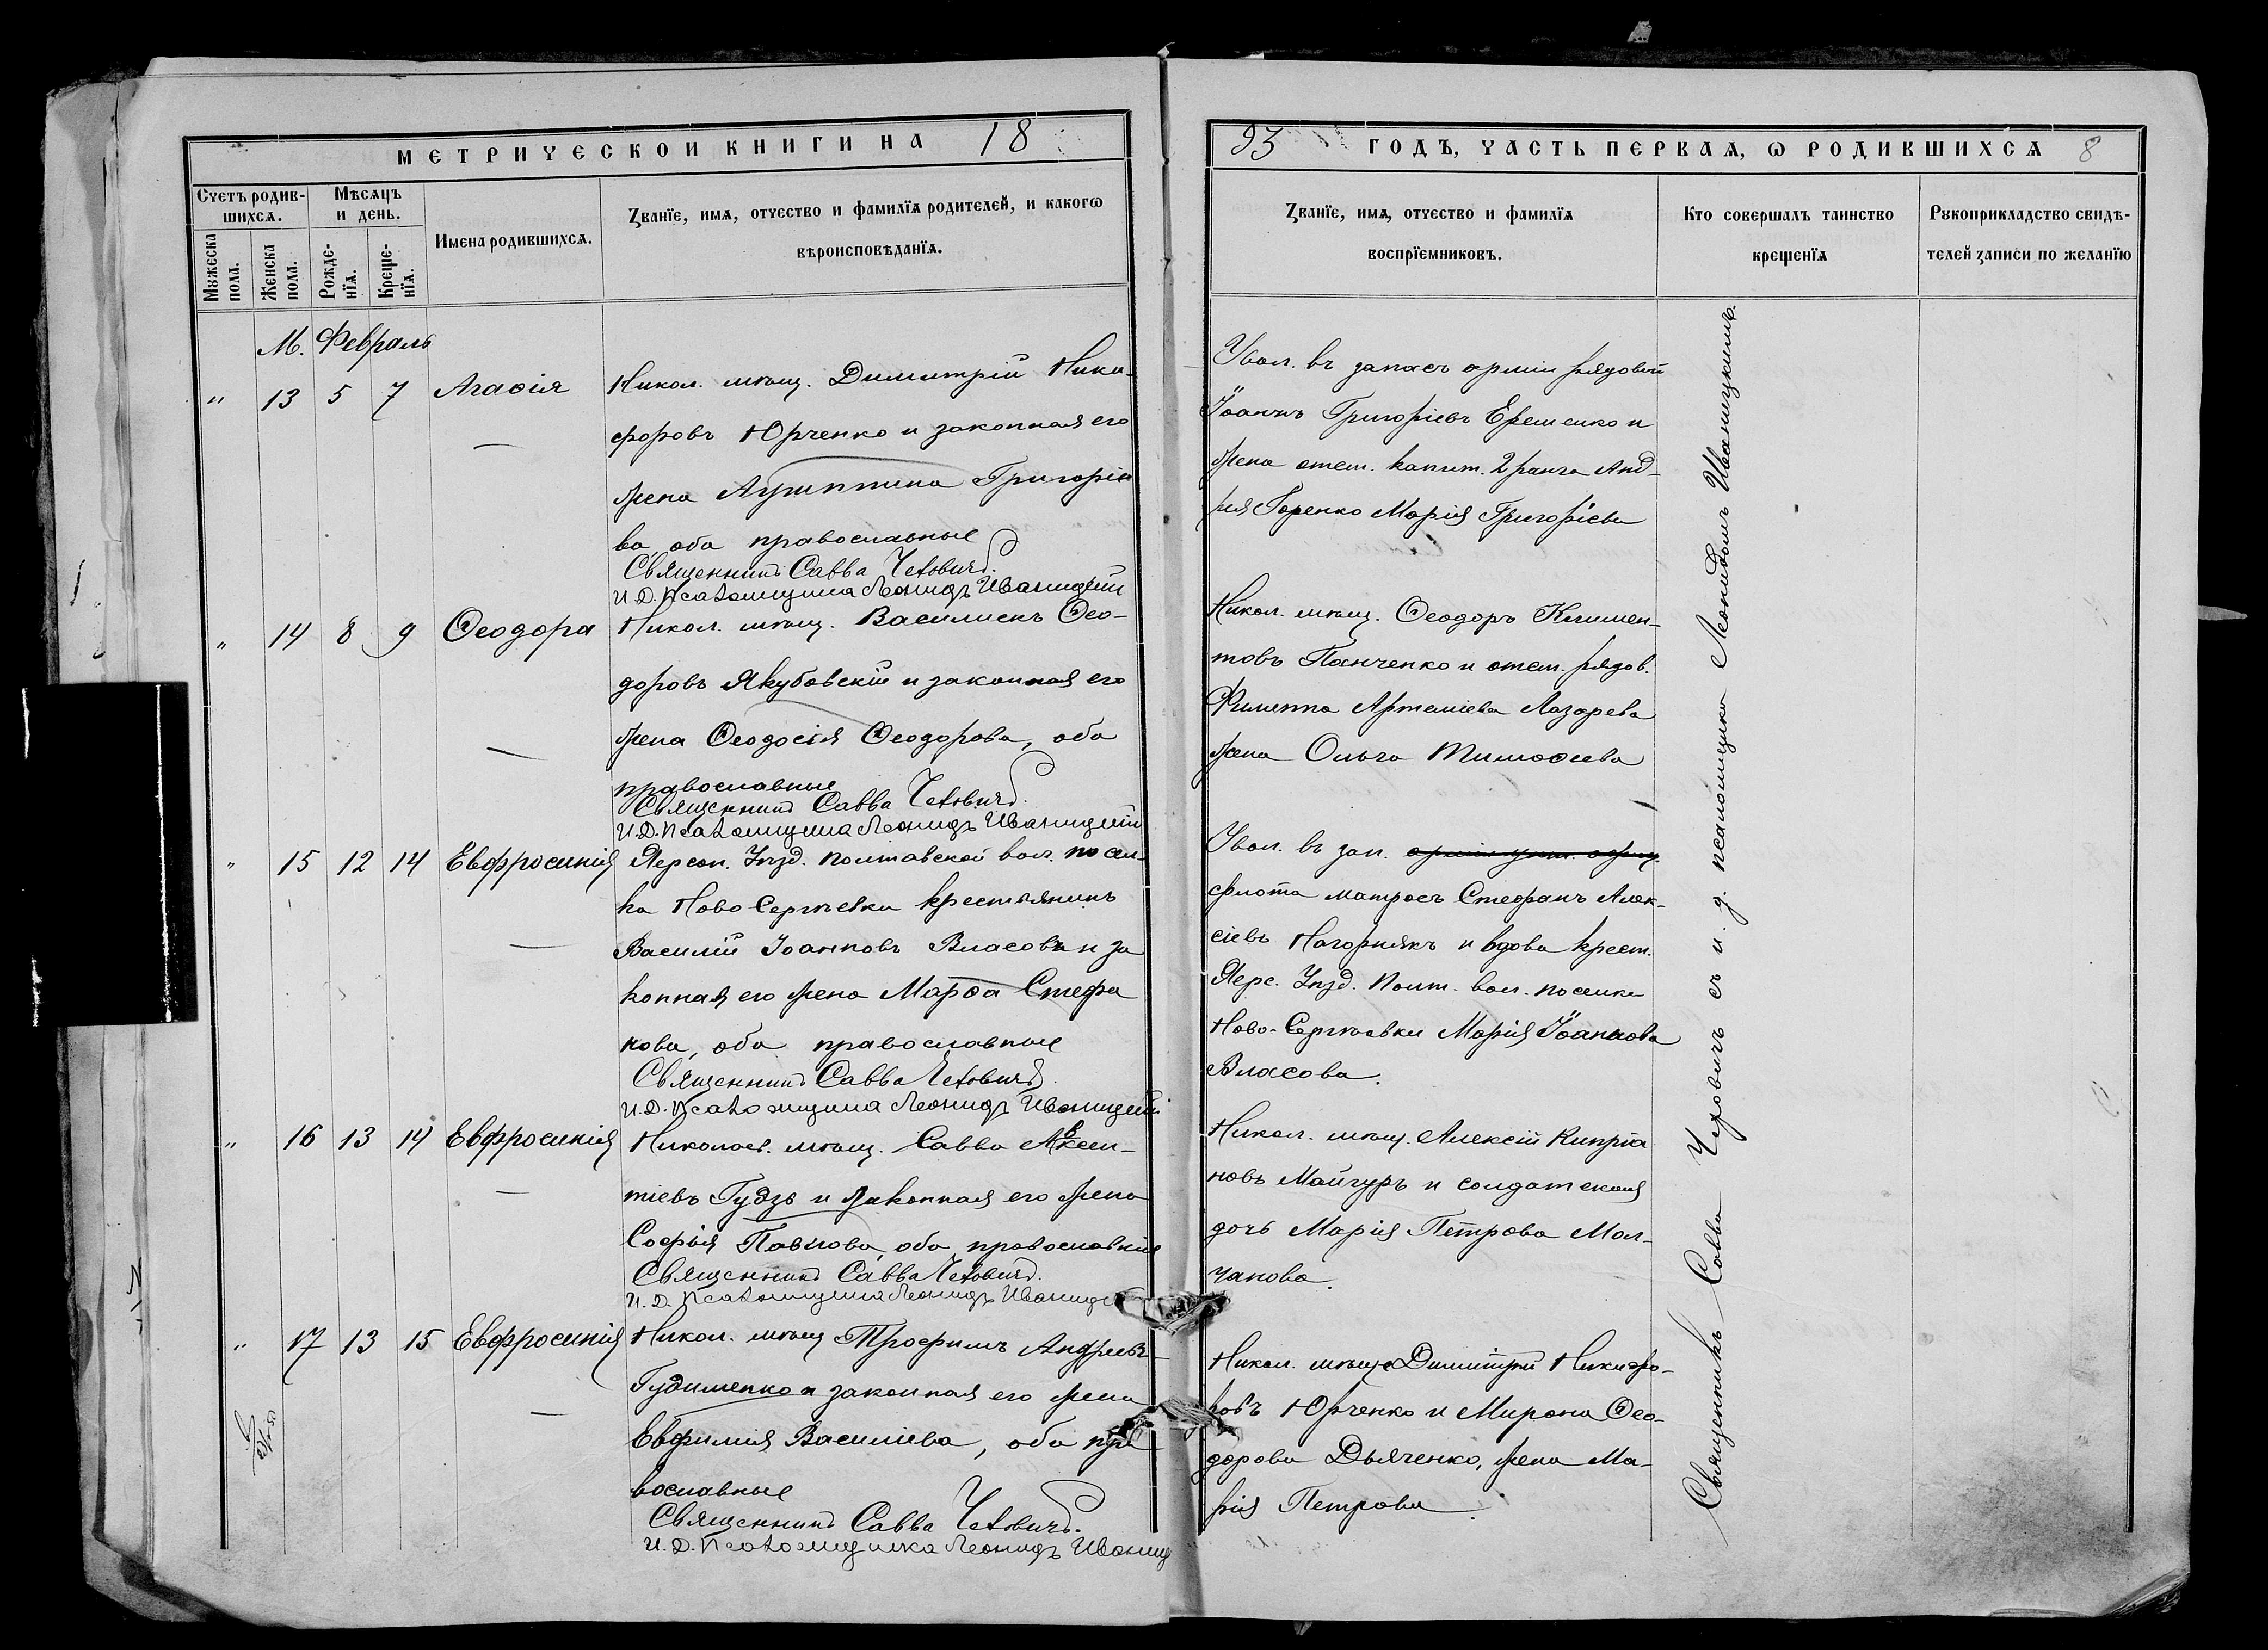 МЕТРИЧЕСКОЙ КНИГИ НА 18
93 ГОДЪ, ЧАСТЬ ПЕРВАЯ, Ѡ РОДИВШИХСЯ 8
Счетъ родив-
шихся.
Мѣсяцъ
и день.
Мужеска
пола.
Женска
пола.
Рожде-
нїя.
Креще-
нїя.
Имена родившихся.
Званїе, имя, отчество и фамилїя родителей, и какогѡ
вѣроисповѣданїя.
Званїе, имя, отчество и фамилїя
воспрїемниковъ.
Кто совершалъ таинство
крещенїя
Рукоприкладство свидѣ-
телей записи по желанїю
М. Февраль
" 13 5 7 Агаѳія
Никол. мѣщ. Димитрій Ники-
форовъ Юрченко и законная его
жена Агриппина Григоріе
ва, оба православные
Священникъ Савва Чехович.
И.Д. Псаломщика Леонидъ Иваницкій
Увол. въ запасъ арміи рядовой
Іоаннъ Григоріевъ Еременко и
жена отст. капит. 2 ранга Анд-
рея Горенко Марія Григоріева
" 14 8 9 Ѳеодора
Никол. мѣщ. Василискъ Ѳео-
доровъ Якубовскій и законная его
жена Ѳеодосія Ѳеодорова, оба
православные
Священникъ Савва Чехович.
И.Д. Псаломщика Леонидъ Иваницкій
Никол. мѣщ. Ѳеодоръ Климен-
товъ Панченко и отст. рядов.
Филиппа Артеміева Лазарева
жена Ольга Тимоѳеева
" 15 12 14 Евфросинія
Херсон. уѣзд. Полтавской вол. посел-
ка Ново-Сергѣевки крестьянинъ
Василій Іоанновъ Власовъ и за
конная его жена Марѳа Стефа
нова, оба православные
Священникъ Савва Чехович.
И.Д. Псаломщика Леонидъ Иваницкій
Увол. въ зап. арміи унт. офиц.
флота матросъ Стефанъ Алек-
сіевъ Нагорнякъ и вдова крест.
Херс. уѣзд. Полт. вол. поселка
Ново-Сергѣевки Марія Іоаннова
Власова.
" 16 13 14 Евфросинія
Николаев. мѣщ. Савва Авксен-
тіевъ Гудзь и законная его жена
Софья Павлова, оба православные
Священникъ Савва Чехович.
И.Д. Псаломщика Леонидъ Иваниц
Никол. мѣщ. Алексій Кипріа
новъ Майгуръ и солдатская
дочь Марія Петрова Мол-
чанова.
" 17 13 15 Евфросинія
Никол. мѣщ Трофимъ Андреевъ
Гудименко и законная его жена
Евфимія Василіева, оба пра
вославные
Священникъ Савва Чехович.
И.Д. Псаломщика Леонидъ Иваниц
Никол. мѣщ. Димитрій Никифо-
ровъ Юрченко и Мирона Ѳео-
дорова Дьяченко, жена Ма-
рія Петрова.
Священникъ Савва Чеховичъ съ и. д. псаломщика Леонидомъ Иваницкимъ.